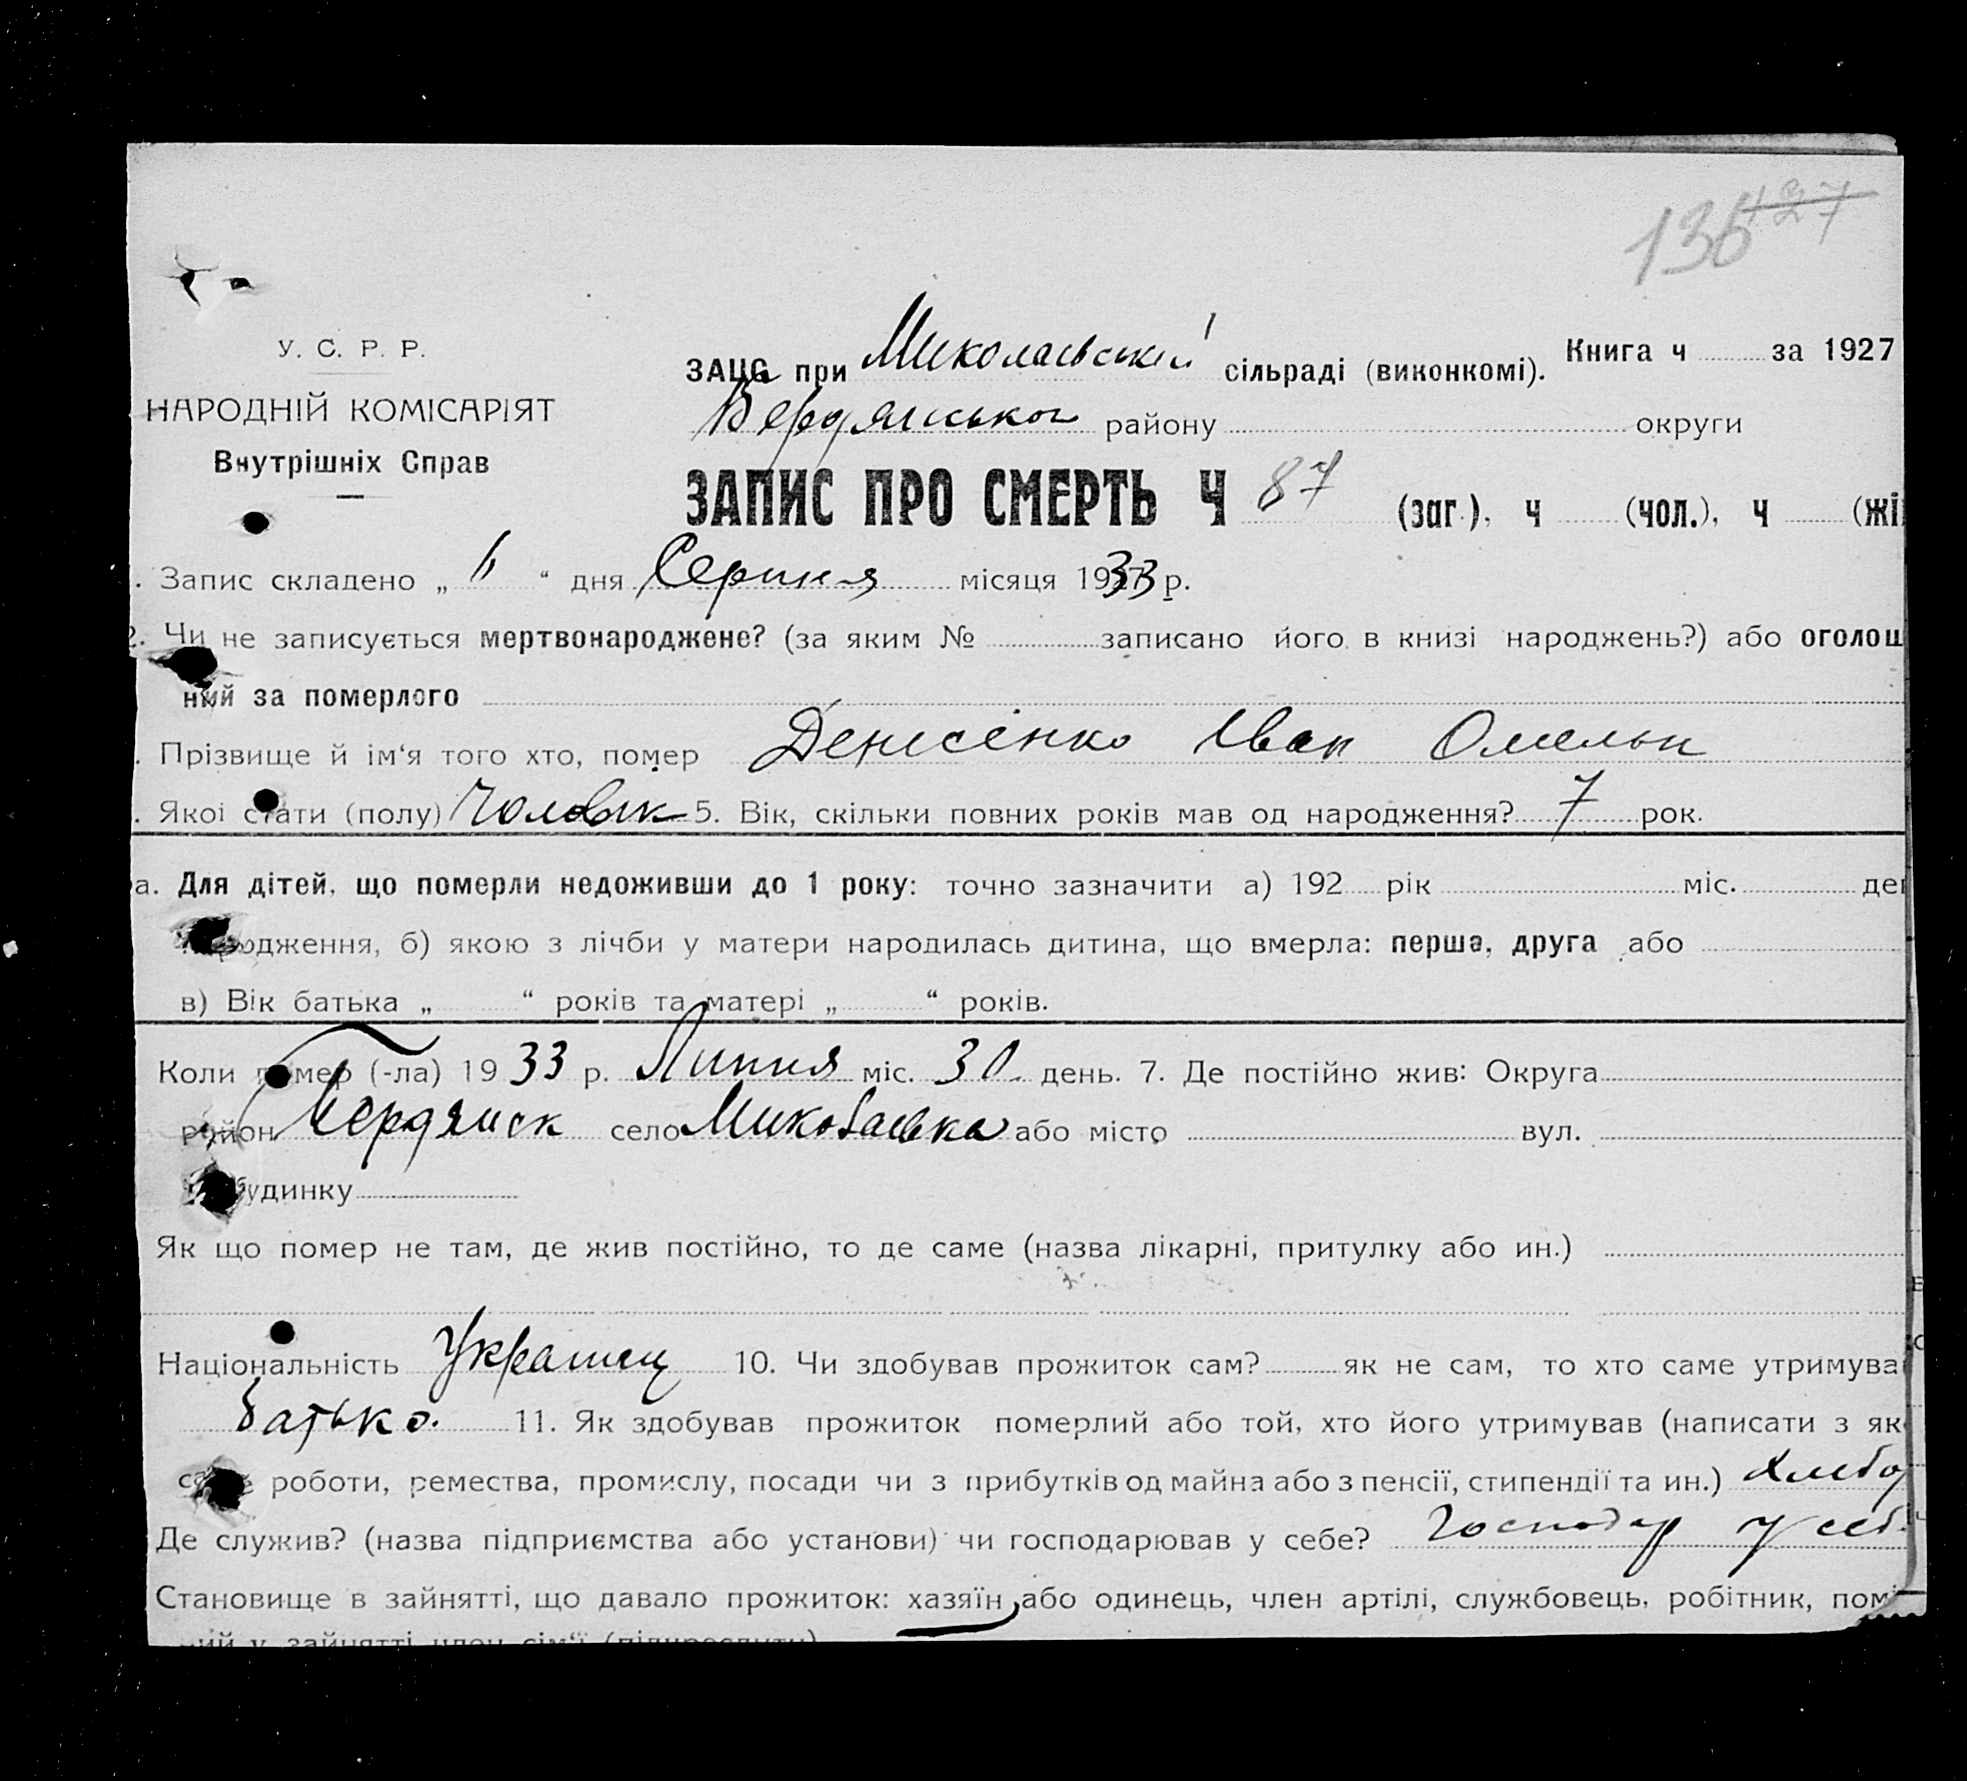 136 127
У. С. Р. Р.
НАРОДНІЙ КОМІСАРІЯТ
Внутрішніх Справ
ЗАЦС при Миколаївській сільраді (виконкомі). Книга ч за 1927
Бердянського району округи
ЗАПИС ПРО СМЕРТЬ Ч 87 (заг.), ч (чол.), ч (жі
. Запис складено „ 6 “ дня Серпня місяця 1933 р.
2. Чи не записується мертвонароджене? (за яким № записано його в книзі народжень?) або оголош
ний за померлого
. Прізвище й ім‘я того хто, помер Денесенко Іван Омельк
. Якої стати (полу) Чоловік 5. Вік, скільки повних років мав од народження? 7 рок.
а. Для дітей, що померли недоживши до 1 року: точно зазначити а) 192 рік міс. ден
народження, б) якою з лічби у матери народилась дитина, що вмерла: перша, друга або
в) Вік батька „ “ років та матері „ “ років.
Коли помер (-ла) 1933 р. Липня міс. 30 день. 7. Де постійно жив: Округа
район Бердянск село Миколаевка або місто вул.
будинку
Як що помер не там, де жив постійно, то де саме (назва лікарні, притулку або ин.)
Національність Украинец 10. Чи здобував прожиток сам? як не сам, то хто саме утримува
батько. 11. Як здобував прожиток померлий або той, хто його утримував (написати з як
саме роботи, ремества, промислу, посади чи з прибутків од майна або з пенсії, стипендії та ин.) Хлебо
Де служив? (назва підприємства або установи) чи господарював у себе? Господар у себ
Становище в зайнятті, що давало прожиток: хазяїн, або одинець, член артілі, службовець, робітник, помі
ний у зайнятті член сім‘ї (підкреслити)